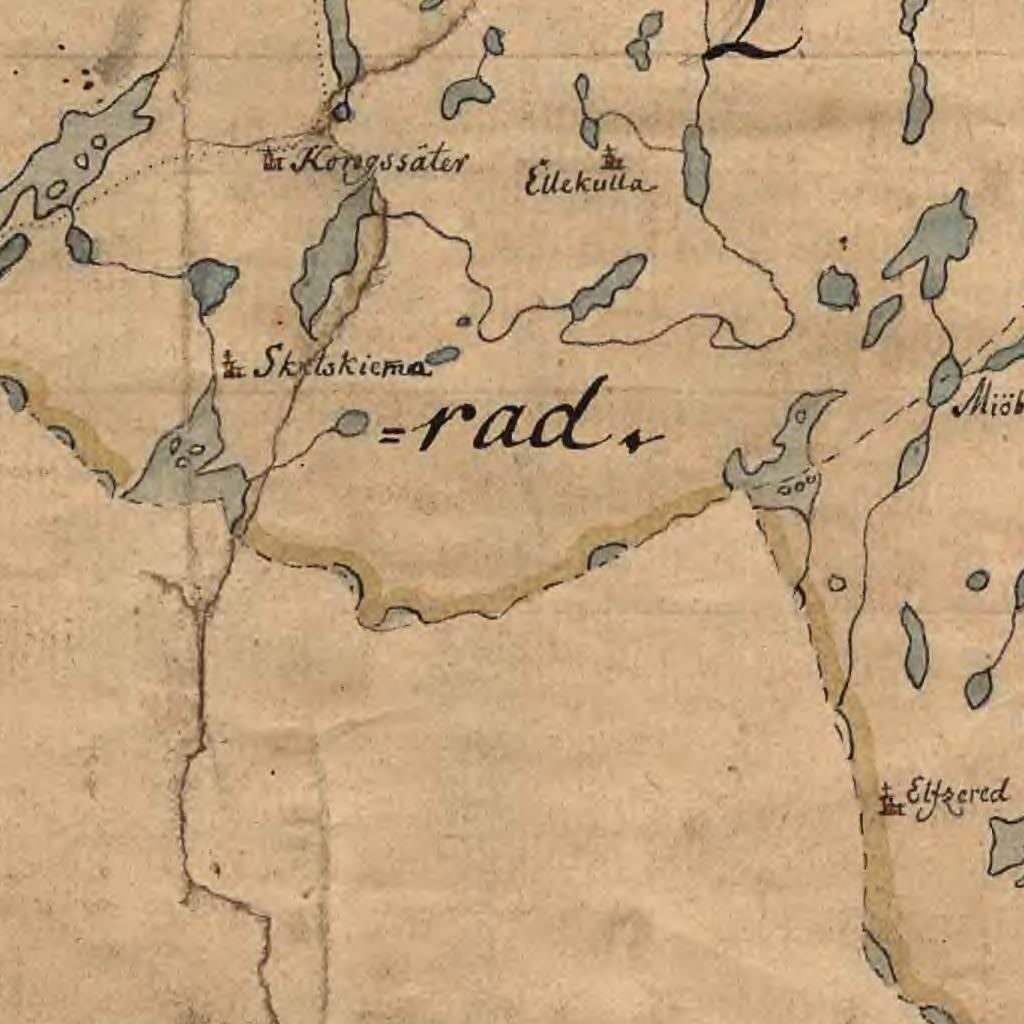 Kongssäter
Ellekulla
Skelskiema
=rad.
Miöb
Elfzered